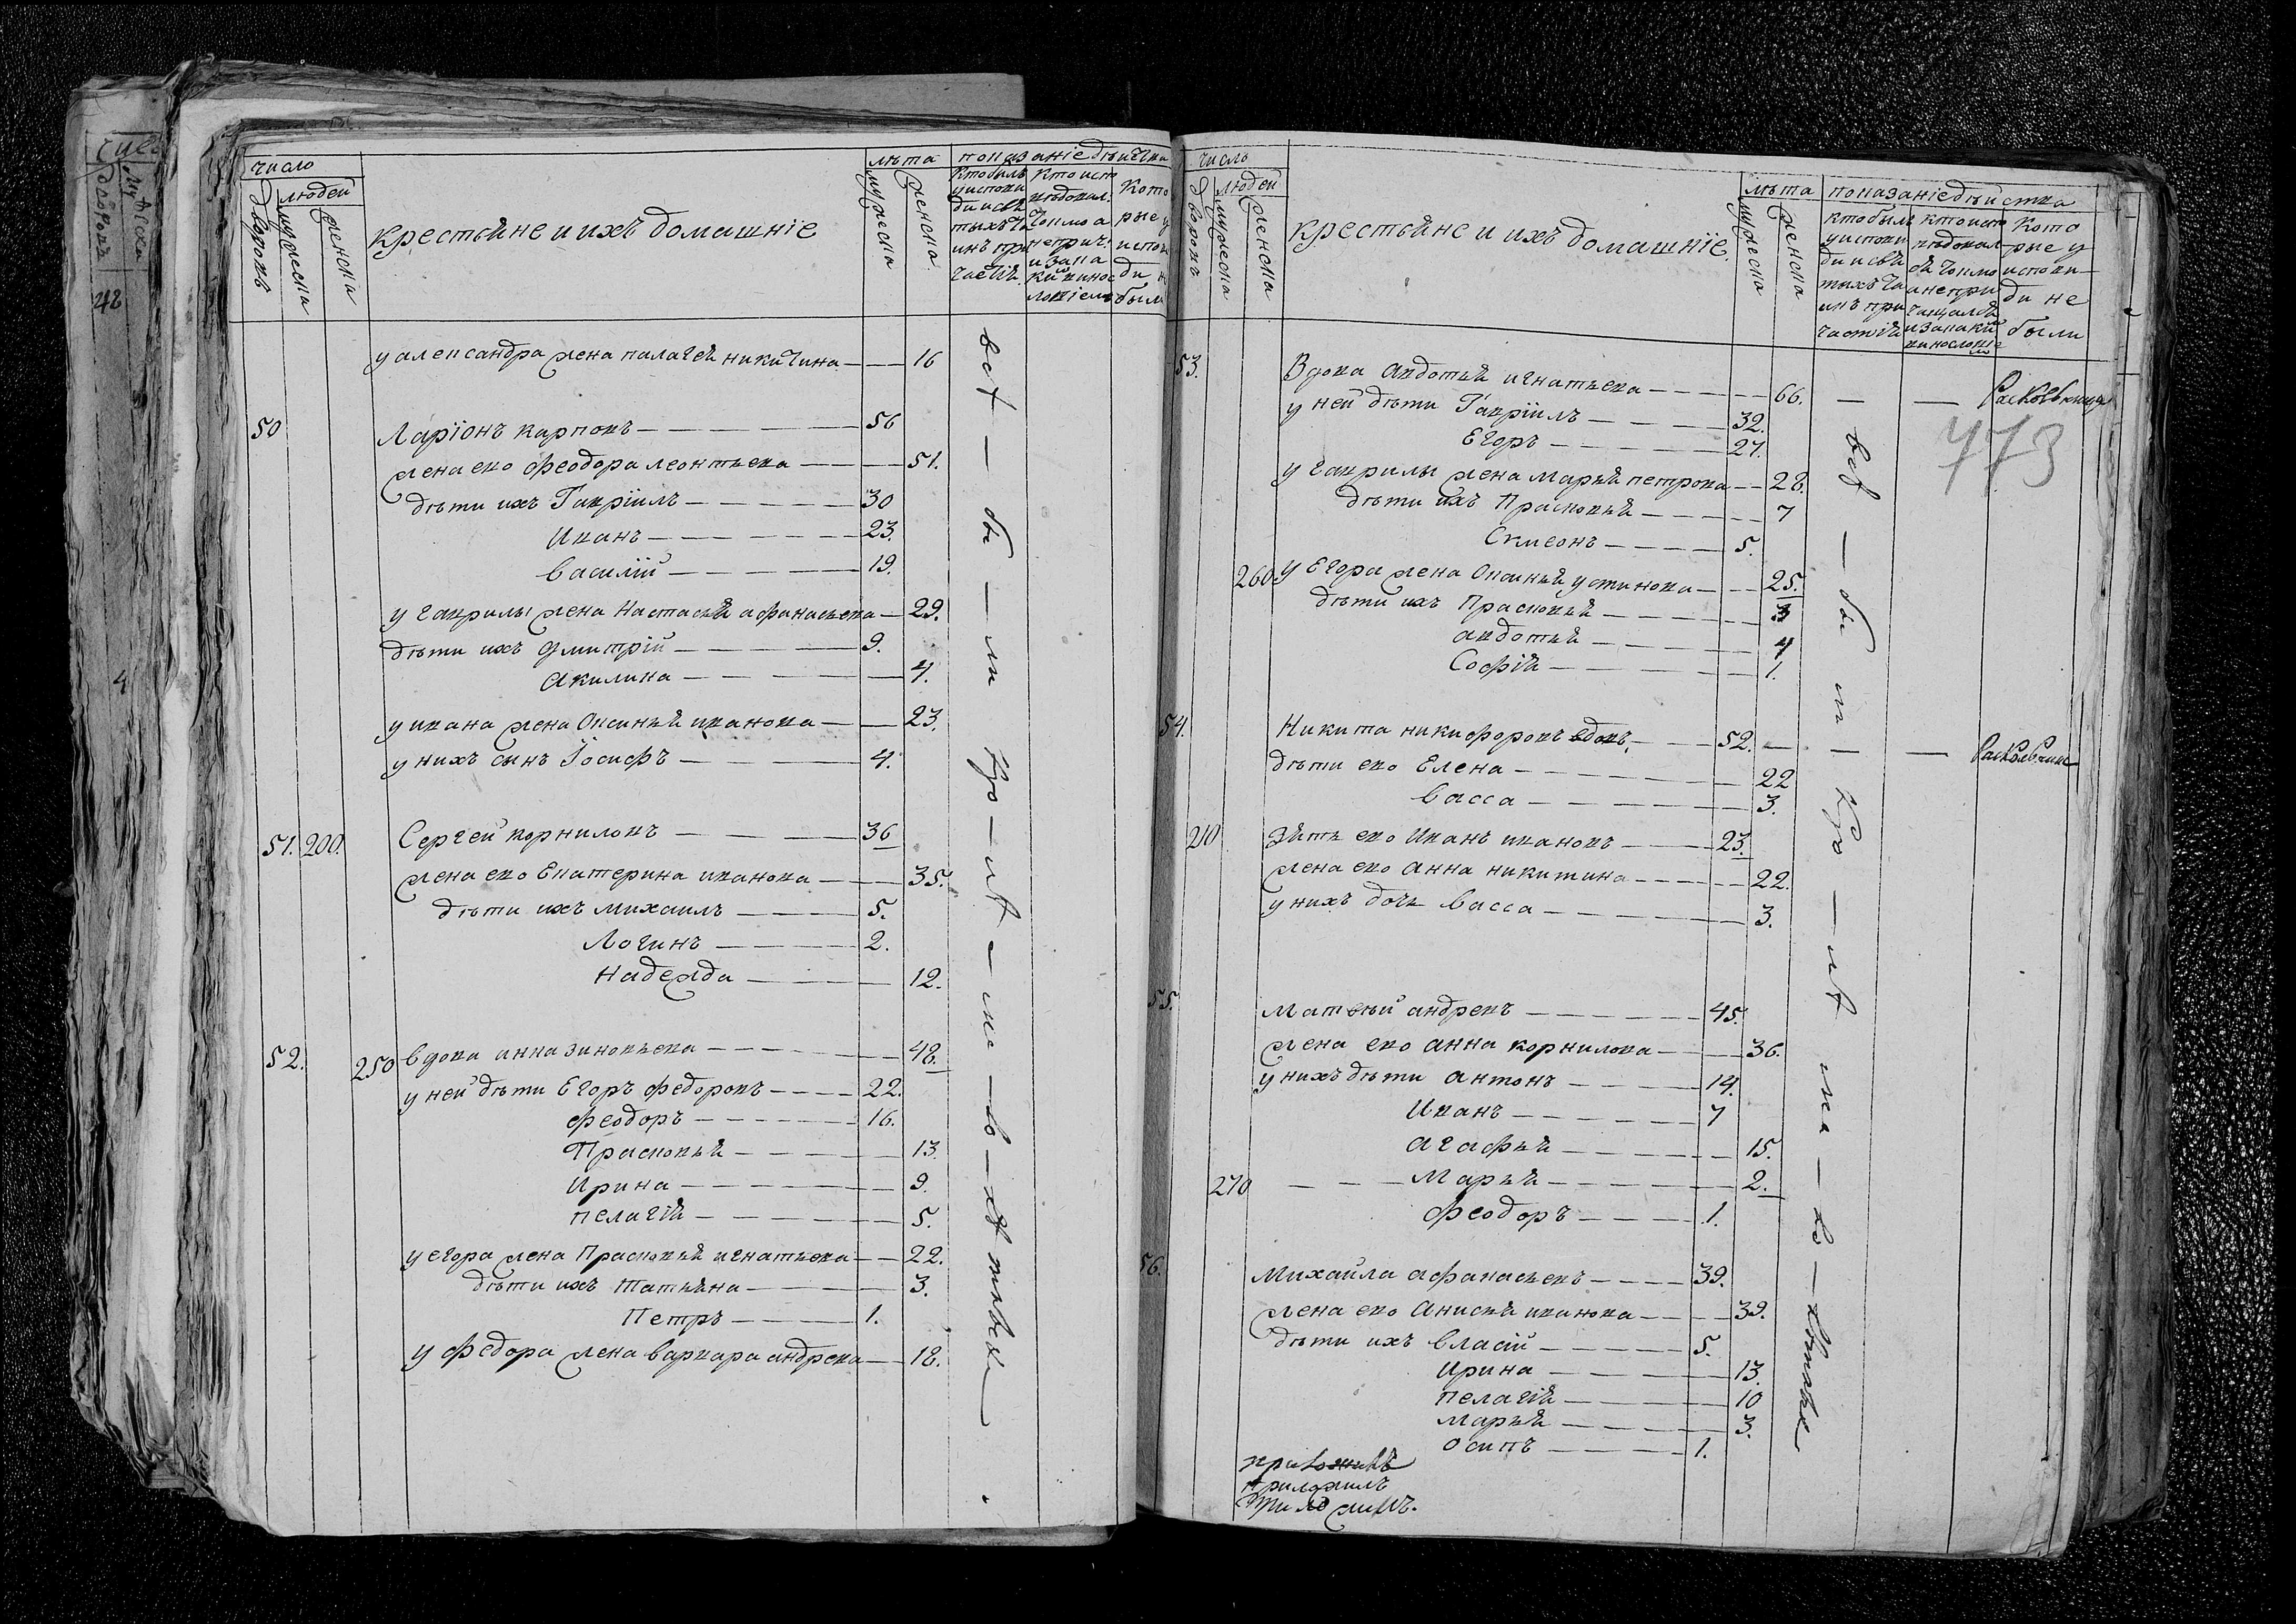 число
людей
дворовъ
мужеска
женска
крестьяне и ихъ домашніе
лѣта
мужеска
женска
показаніе дѣйства
кто былъ
у исповѣ
ди и свя
тыхъ та
инъ при
частія
кто исп
овѣдовал.
токмо а
не прич.
и за ка
кимъ винос
ловіемъ
кото
рые у
исповѣ
ди не
были
у александра жена палагея никитина — — 16
50
Ларіонъ карповъ — 56
жена ево феодора леонтьева — 51.
дѣти ихъ Гавріилъ — 30
Иванъ — 23.
василій — 19.
у гаврилы жена Настасья афанасьева — 29.
дѣти ихъ дмитрій — 9.
акилина — 4.
у ивана жена Оксинья иванова — 23.
у нихъ сынъ Іосифъ — 4.
51. 200.
Сергей корниловъ — 36
жена ево Екатерина иванова — 35.
дѣти ихъ михаилъ — 5.
Логинъ — 2.
надежда — 12.
52. 250
вдова анна зиновьева — 48.
у ней дѣти Егоръ федоровъ — 22.
феодоръ — 16.
Прасковья — 13.
Ирина — 9.
пелагія — 5.
у егора жена Прасковья игнатьева — 22.
дѣти ихъ татьяна — 3.
Петръ — 1.
у федора жена варвара андрева — 18.
всѣ — бы — ли
число
людей
дворовъ
мужеска
женска
крестьяне и ихъ домашніе
лѣта
мужеска
женска
показаніе дѣйства
кто былъ
у исповѣ
ди и свя
тыхъ та
инъ при
частія
кто исп
овѣдовал
ся токмо
а не при
чащался
и за каким
винословіе
мъ
кото
рые у
исповѣ
ди не
были
53.
Вдова авдотья игнатьева — 66. — — Расколница
773
у ней дѣти Гавріилъ — 32.
Егоръ — 27.
у гаврилы жена марья петрова — 28.
дѣти ихъ Прасковья — 7
Симеонъ — 5.
260
у Егора жена Оксинья устинова — 25.
дѣти ихъ Прасковья — 3
авдотья — 4
Софія — 1.
54.
Никита никифоровъ вдовъ — 52. — — Расколникъ
дѣти ево Елена — 22
васса — 3.
210
зять ево Иванъ ивановъ — 23.
жена ево анна никитина — 22.
у нихъ дочь васса — 3.
55.
матвѣй андревъ — 45.
жена ево анна корнилова — 36.
у нихъ дѣти антонъ — 14.
Иванъ — 7
агафья — 15.
270
— — — Марья — 2.
феодоръ — 1.
56.
михайла афанасьевъ — 39.
жена ево Анисья иванова — 39.
дѣти ихъ власій — 5.
Ирина — 13.
пелагія — 10
марья — 3.
осипъ — 1.
приложилъ
всѣ — бы